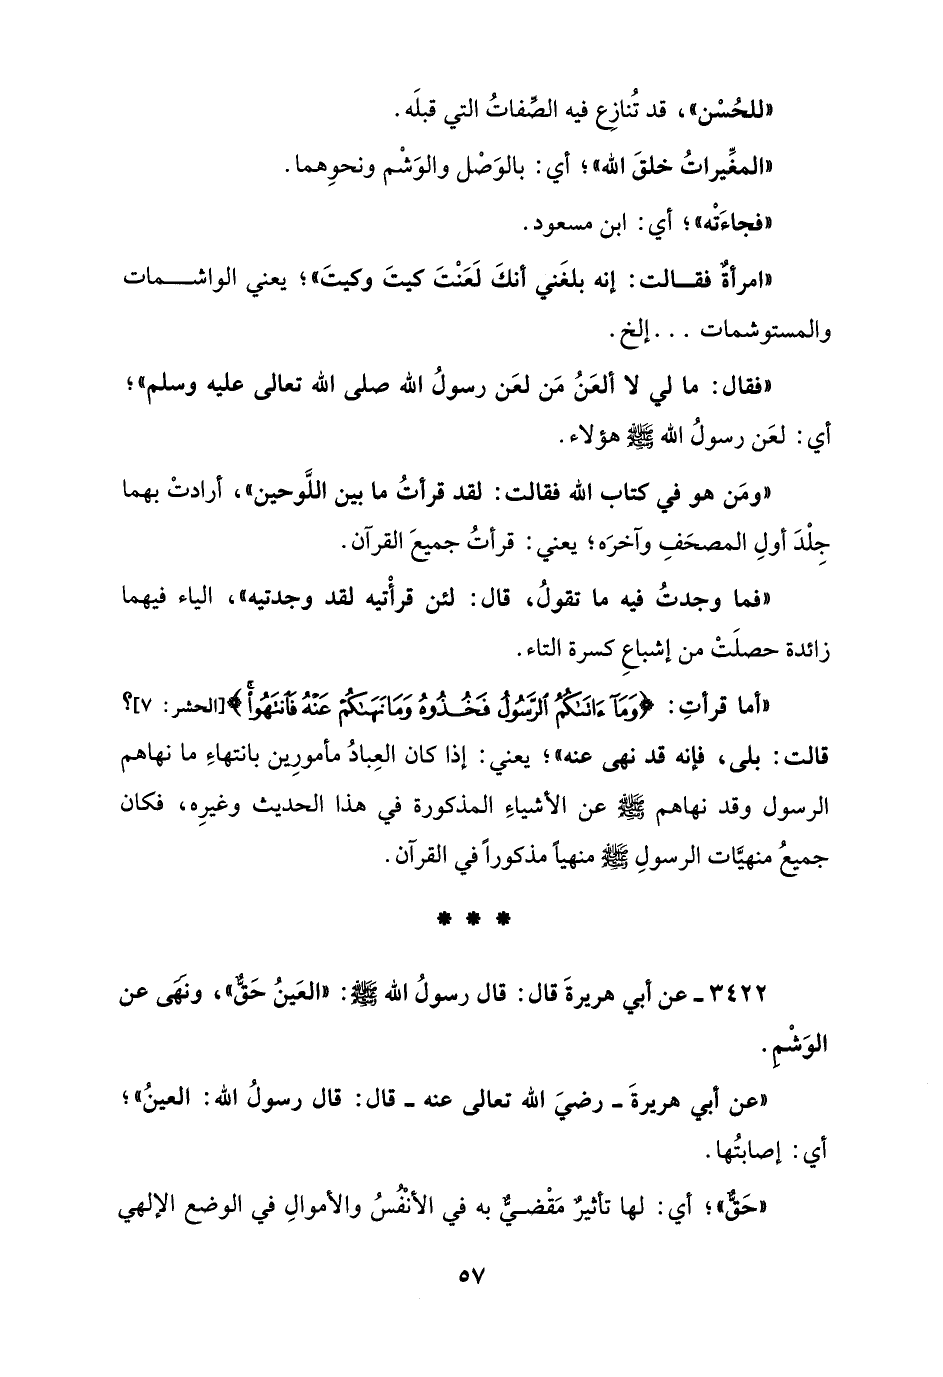 «للحُسْن»، قد تُنازِع فيه الصِّفاتُ التي قبلَه.
«المغِّيراتُ خلقَ الله»؛ أي: بالوَصْل والوَشْم ونحوِهما.
«فجاءَتْه»؛ أي: ابن مسعود.
«امرأةٌ فقالت: إنه بلغَني أنكَ لَعَنْتَ كيتَ وكيتَ»؛ يعني الواشمات
والمستوشمات ...إلخ.
«فقال: ما لي لا ألعَنُ مَن لعَن رسولُ الله صلى الله تعالى عليه وسلم»؛
أي: لعَن رسولُ الله ﷺ هؤلاء.
«ومَن هو في كتاب الله فقالت: لقد قرأتُ ما بين اللَّوحين»، أرادتْ بهما
جِلْدَ أولِ المصحَفِ وآخرَه؛ يعني: قرأتُ جميعَ القرآن.
«فما وجدتُ فيه ما تقولُ، قال: لئن قرأْتيه لقد وجدتيه»، الياء فيهما
زائدة حصلَتْ من إشباعِ كسرة التاء.
«أما قرأتِ: ﴿وَمَآ ءَاتَىٰكُمُ ٱلرَّسُولُ فَخُذُوهُ وَمَا نَهَىٰكُمْ عَنْهُ فَٱنتَهُوا۟ۚ﴾[الحشر: ٧]؟
قالت: بلى، فإنه قد نهى عنه»؛ يعني: إذا كان العِبادُ مأمورِين بانتهاءِ ما نهاهم
الرسول وقد نهاهم ﷺ عن الأشياءِ المذكورة في هذا الحديث وغيرِه، فكان
جميعُ منهيَّات الرسولِ ﷺ منهياً مذكوراً في القرآن.
* * *
٣٤٢٢ ـ عن أبي هريرةَ قال: قال رسولُ الله ﷺ: «العَينُ حَقٌّ»، ونهَى عن
الوَشْمِ.
«عن أبي هريرةَ ـ رضيَ الله تعالى عنه ـ قال: قال رسولُ الله: العينُ»؛
أي: إصابتُها.
«حَقٌّ»؛ أي: لها تأثيرٌ مَقْضيٌّ به في الأنْفُسُ والأموالِ في الوضع الإلهي
٥٧